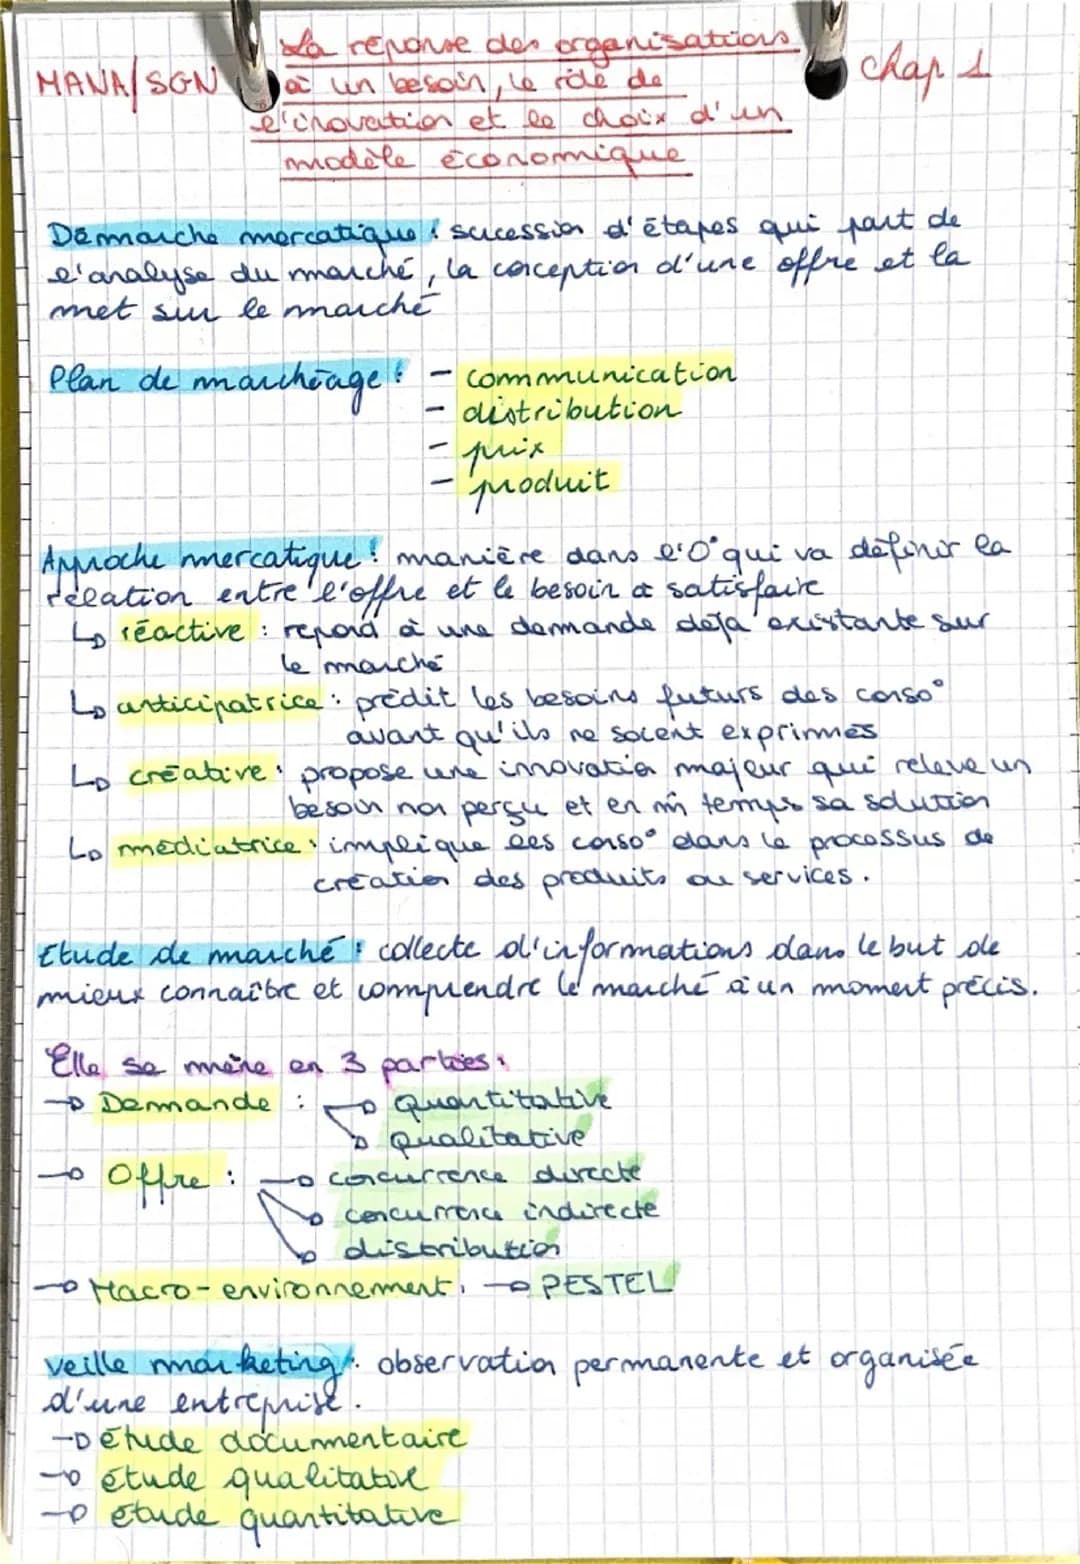 MANA/SGN
La réponse des organisations
à un besoin, le rôle de
l'inovation et le choix d'un
modèle économique
Chap 1
Démarche mercatique : sucession d'étapes qui part de
l'analyse du marché, la conception d'une offre et la
met sur le marché
Plan de marchéage : - communication
- distribution
- prix
- produit
Approche mercatique : manière dans l'O° qui va définir la
relation entre l'offre et le besoin à satisfaire
↳ réactive : repond à une demande déjà existante sur
le marché
↳ anticipatrice : prédit les besoins futurs des conso°
avant qu'ils ne soient exprimés
↳ créative : propose une innovation majeur qui releve un
besoin non perçu et en mm temps sa solution
↳ médiatrice : implique les conso° dans le processus de
création des produits ou services.
Etude de marché : collecte d'informations dans le but de
mieux connaître et comprendre le marché à un moment précis.
Elle se mène en 3 parties :
→ Demande : → quantitative
→ qualitative
→ Offre : → concurrence directe
→ concurrence indirecte
→ distribution
→ Macro-environnement : → PESTEL
veille marketing : observation permanente et organisée
d'une entreprise.
→ étude documentaire
→ étude qualitative
→ étude quantitative